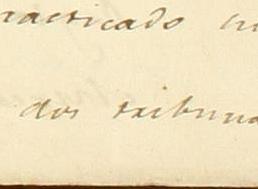 racticado
dos tribuna